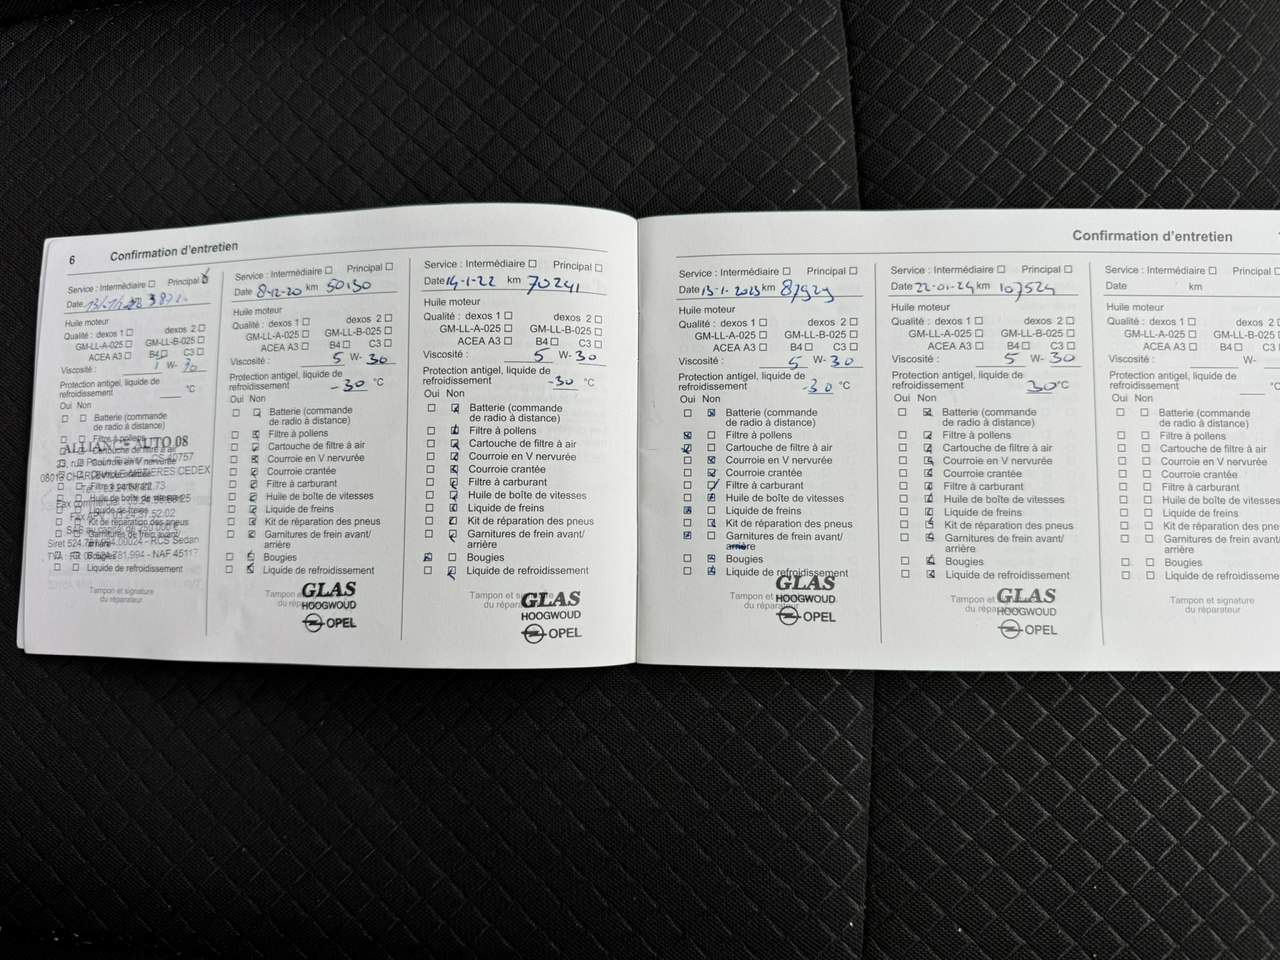 6 Confirmation d'entretien
Service : Intermédiaire ☐ Principal
Date
Huile moteur
Qualité : dexos 1 ☐ dexos 2 ☐
GM-LL-A-025 ☐ GM-LL-B-025 ☐
ACEA A3 ☐ B4 ☐ C3 ☐
Viscosité : W- 30
Protection antigel, liquide de
refroidissement °C
Oui Non
Batterie (commande
de radio à distance)
Filtre à pollens
ALLIANCE AUTO 08
Cartouche de filtre à air
Courroie en V nervurée
CEDEX
Filtre à carburant
Huile de boîte de vitesses
Liquide de freins
Kit de réparation des pneus
Garnitures de frein avant/
arrière
RCS Sedan
Bougies
Liquide de refroidissement
Tampon et signature
du réparateur
Service : Intermédiaire ☐ Principal ☐
Date 8-12-20 km 50130
Huile moteur
Qualité : dexos 1 ☐ dexos 2 ☐
GM-LL-A-025 ☐ GM-LL-B-025 ☐
ACEA A3 ☐ B4 ☐ C3 ☐
Viscosité : 5 W- 30
Protection antigel, liquide de
refroidissement -30 °C
Oui Non
Batterie (commande
de radio à distance)
Filtre à pollens
Cartouche de filtre à air
Courroie en V nervurée
Courroie crantée
Filtre à carburant
Huile de boîte de vitesses
Liquide de freins
Kit de réparation des pneus
Garnitures de frein avant/
arrière
Bougies
Liquide de refroidissement
Tampon et
du rép
GLAS
HOOGWOUD
OPEL
Service : Intermédiaire ☐ Principal ☐
Date 14-1-22 km 70241
Huile moteur
Qualité : dexos 1 ☐ dexos 2 ☐
GM-LL-A-025 ☐ GM-LL-B-025 ☐
ACEA A3 ☐ B4 ☐ C3 ☐
Viscosité : 5 W- 30
Protection antigel, liquide de
refroidissement -30 °C
Oui Non
Batterie (commande
de radio à distance)
Filtre à pollens
Cartouche de filtre à air
Courroie en V nervurée
Courroie crantée
Filtre à carburant
Huile de boîte de vitesses
Liquide de freins
Kit de réparation des pneus
Garnitures de frein avant/
arrière
Bougies
Liquide de refroidissement
Tampon et signature
du réparateur
GLAS
HOOGWOUD
OPEL
Confirmation d'entretien
Service : Intermédiaire ☐ Principal ☐
Date 13-1-2023 km 87929
Huile moteur
Qualité : dexos 1 ☐ dexos 2 ☐
GM-LL-A-025 ☐ GM-LL-B-025 ☐
ACEA A3 ☐ B4 ☐ C3 ☐
Viscosité : 5 W- 30
Protection antigel, liquide de
refroidissement -30 °C
Oui Non
Batterie (commande
de radio à distance)
Filtre à pollens
Cartouche de filtre à air
Courroie en V nervurée
Courroie crantée
Filtre à carburant
Huile de boîte de vitesses
Liquide de freins
Kit de réparation des pneus
Garnitures de frein avant/
arrière
Bougies
Liquide de refroidissement
Tampon et
du réparateur
GLAS
HOOGWOUD
OPEL
Service : Intermédiaire ☐ Principal ☐
Date 22-01-24 km 107524
Huile moteur
Qualité : dexos 1 ☐ dexos 2 ☐
GM-LL-A-025 ☐ GM-LL-B-025 ☐
ACEA A3 ☐ B4 ☐ C3 ☐
Viscosité : 5 W- 30
Protection antigel, liquide de
refroidissement 30 °C
Oui Non
Batterie (commande
de radio à distance)
Filtre à pollens
Cartouche de filtre à air
Courroie en V nervurée
Courroie crantée
Filtre à carburant
Huile de boîte de vitesses
Liquide de freins
Kit de réparation des pneus
Garnitures de frein avant/
arrière
Bougies
Liquide de refroidissement
Tampon et si
du répa
GLAS
HOOGWOUD
OPEL
Service : Intermédiaire ☐ Principal ☐
Date km
Huile moteur
Qualité : dexos 1 ☐ dexos 2
GM-LL-A-025 ☐ GM-LL-B-025
ACEA A3 ☐ B4 ☐ C3
Viscosité : W-
Protection antigel, liquide de
refroidissement °C
Oui Non
Batterie (commande
de radio à distance)
Filtre à pollens
Cartouche de filtre à air
Courroie en V nervurée
Courroie crantée
Filtre à carburant
Huile de boîte de vitesses
Liquide de freins
Kit de réparation des pneus
Garnitures de frein avant/
arrière
Bougies
Liquide de refroidisseme
Tampon et signature
du réparateur